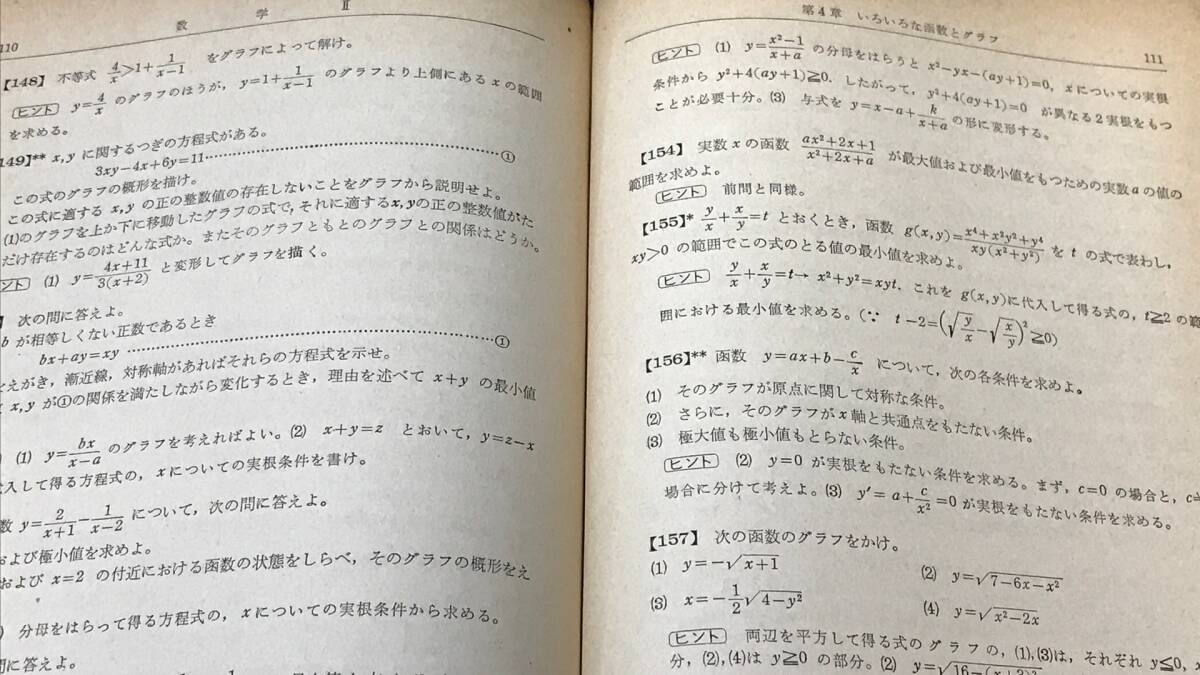 110
数学 II
【148】 不等式 4/x>1+1/(x-1) をグラフによって解け。
ヒント y=4/x のグラフのほうが，y=1+1/(x-1) のグラフより上側にある x の範囲
を求める。
149】** x, y に関するつぎの方程式がある。
3xy-4x+6y=11……①
この式のグラフの概形を描け。
この式に適する x, y の正の整数値の存在しないことをグラフから説明せよ。
(1)のグラフを上か下に移動したグラフの式で，それに適するx, yの正の整数値がた
だけ存在するのはどんな式か。またそのグラフともとのグラフとの関係はどうか。
ント (1) y=(4x+11)/(3(x+2)) と変形してグラフを描く。
次の問に答えよ。
b が相等しくない正数であるとき
bx+ay=xy……①
をえがき，漸近線，対称軸があればそれらの方程式を示せ。
x, y が①の関係を満たしながら変化するとき，理由を述べて x+y の最小値
(1) y=bx/(x-a) のグラフを考えればよい。(2) x+y=z とおいて，y=z-x
代入して得る方程式の，x についての実根条件を書け。
数 y=2/(x+1)-1/(x-2) について，次の問に答えよ。
および極小値を求めよ。
および x=2 の付近における函数の状態をしらべ，そのグラフの概形をえ
分母をはらって得る方程式の，x についての実根条件から求める。
問に答えよ。
第4章 いろいろな函数とグラフ
111
ヒント (1) y=(x²-1)/(x+a) の分母をはらうと x²-yx-(ay+1)=0, x についての実根
条件から y²+4(ay+1)≧0. したがって，y²+4(ay+1)=0 が異なる2実根をもつ
ことが必要十分。(3) 与式を y=x-a+k/(x+a) の形に変形する。
【154】 実数 x の函数 (ax²+2x+1)/(x²+2x+a) が最大値および最小値をもつための実数 a の値の
範囲を求めよ。
ヒント 前問と同様。
【155】* y/x+x/y=t とおくとき，函数 g(x, y)=(x⁴+x²y²+y⁴)/(xy(x²+y²)) を t の式で表わし，
xy>0 の範囲でこの式のとる値の最小値を求めよ。
ヒント y/x+x/y=t→ x²+y²=xyt. これを g(x, y)に代入して得る式の，t≧2 の範
囲における最小値を求める。(∵ t-2=(√(y/x)-√(x/y))²≧0)
【156】** 函数 y=ax+b-c/x について，次の各条件を求めよ。
(1) そのグラフが原点に関して対称な条件。
(2) さらに，そのグラフが x 軸と共通点をもたない条件。
(3) 極大値も極小値もとらない条件。
ヒント (2) y=0 が実根をもたない条件を求める。まず，c=0 の場合と，c≠
場合に分けて考えよ。(3) y′=a+c/x²=0 が実根をもたない条件を求める。
【157】 次の函数のグラフをかけ。
(1) y=-√(x+1)
(2) y=√(7-6x-x²)
(3) x=-1/2√(4-y²)
(4) y=√(x²-2x)
ヒント 両辺を平方して得る式のグラフの，(1), (3)は，それぞれ y≦0, x
分，(2), (4)は y≧0 の部分。(2) y=√(16-(x+3)²)